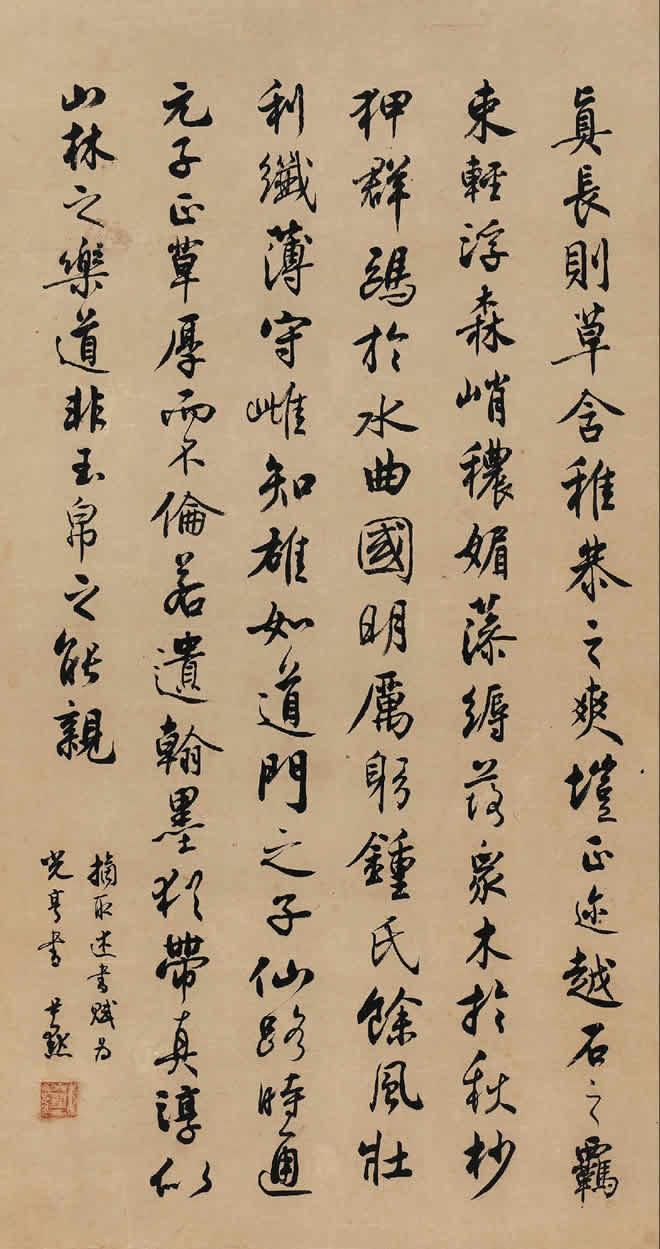 眞長則草含稚恭之爽塏正迹越石之羈
束輕浮森峭穠媚藻縟落衆木於秋杪
狎群鷗於水曲國明厲躬鍾氏餘風壯
利纖薄守雌知雄如道門之子仙路時通
元子正草厚而不倫若遺翰墨猶帶真淳似
山林之樂道非玉帛之能親
摘取述書賦為
光亨書 尹默